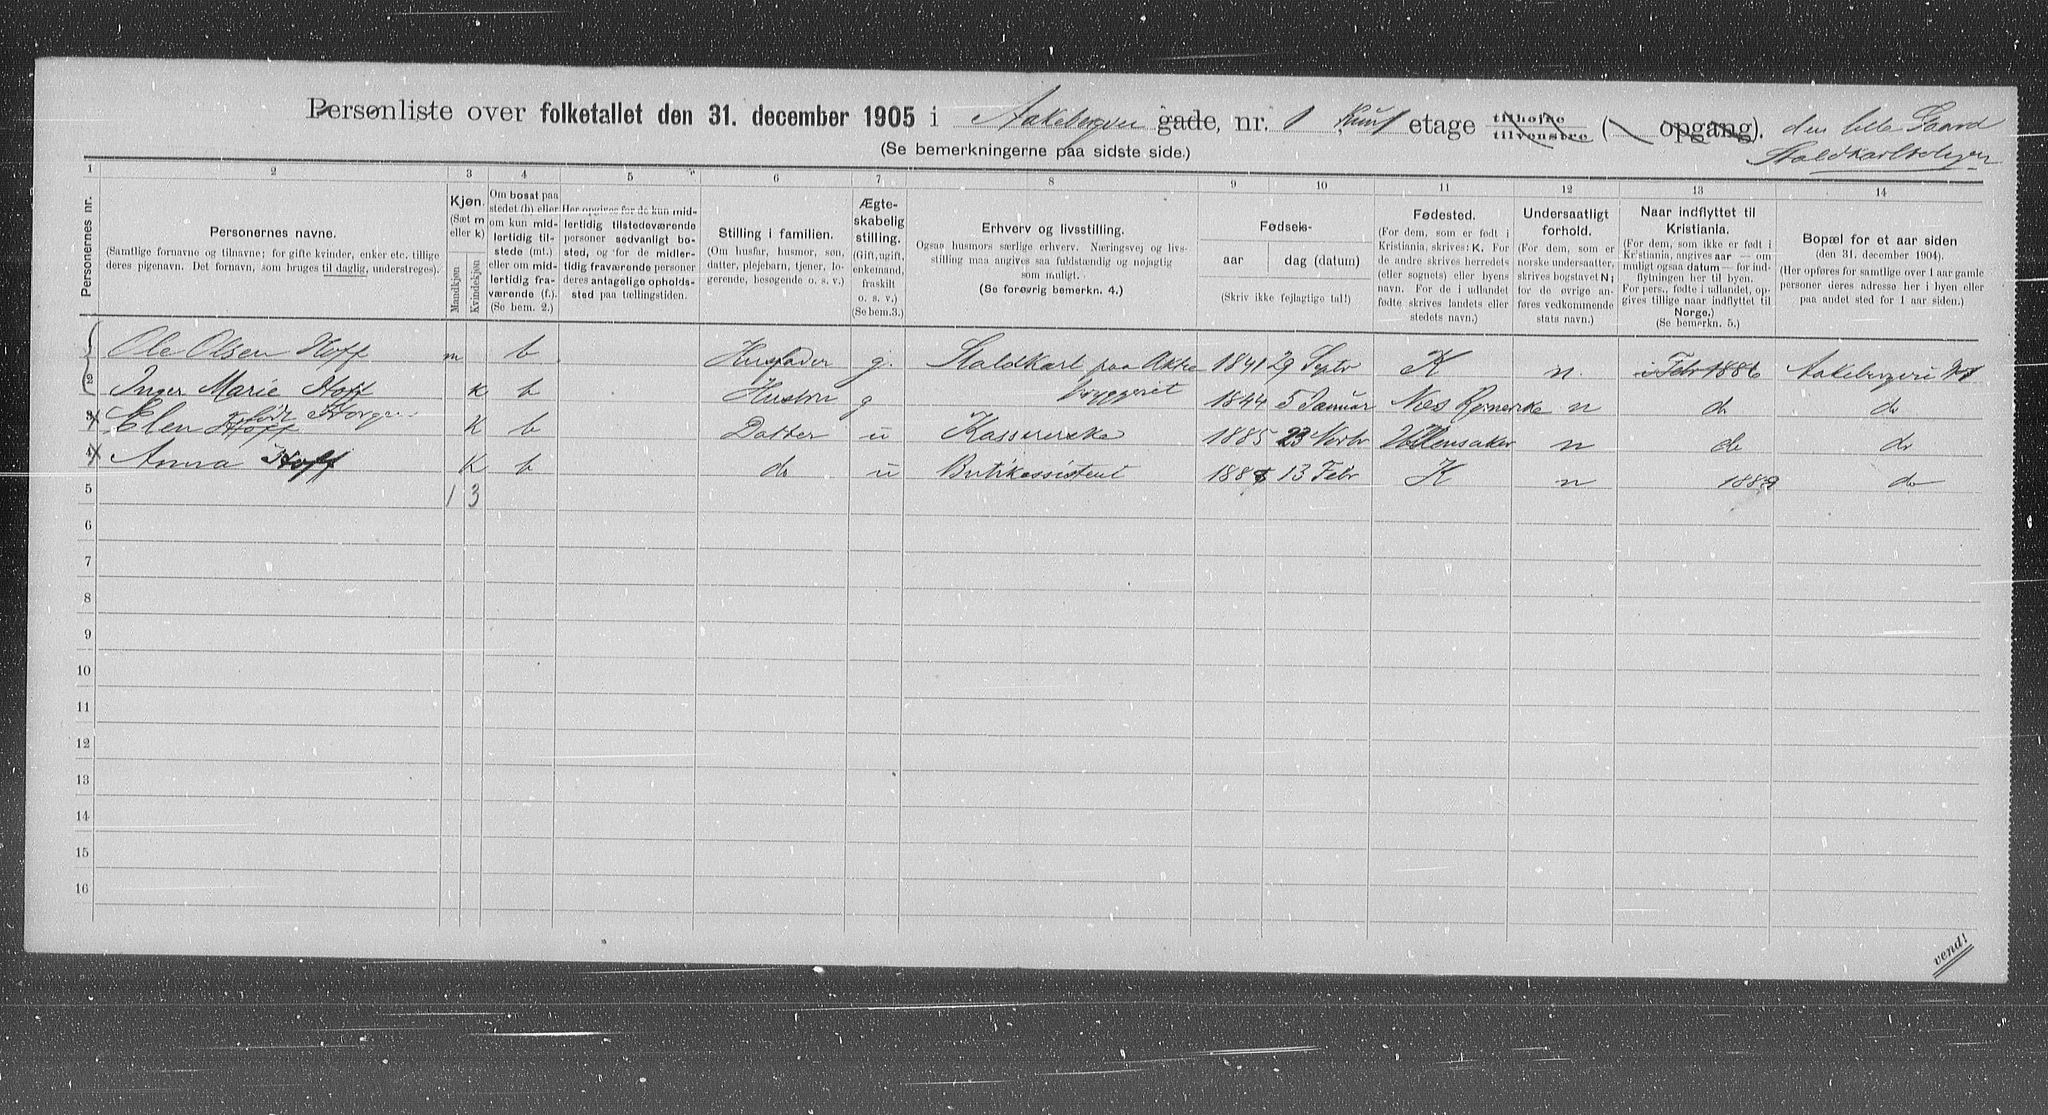 Personliste over folketallet den 31. december 1905 i Aakebergvei gade, nr. 1 etage tilhøjre tilvenstre ( opgang). den lille Gaard
(Se bemerkningerne paa sidste side.)
1 2 3 4 5 6 7 8 9 10 11 12 13 14
Personernes nr.
Personernes navne.
(Samtlige fornavne og tilnavne; for gifte kvinder, enker etc. tillige
deres pigenavn. Det fornavn, som bruges til daglig, understreges).
Kjøn.
(Sæt m
eller k)
Mandkjøn
Kvindekjøn
Om bosat paa
stedet (b) eller
om kun mid-
lertidig til-
stede (mt.)
eller om mid-
lertidig fra-
værende (f.).
(Se bem. 2.)
Her opgives for de kun mid-
lertidig tilstedeværende
personer sedvanligt bo-
sted, og for de midler-
tidig fraværende personer
deres antagelige opholds-
sted paa tællingstiden.
Stilling i familien.
(Om husfar, husmor, søn,
datter, plejebarn, tjener, lo-
gerende, besøgende o. s. v.)
Ægte-
skabelig
stilling.
(Gift, ugift,
enkemand,
fraskilt
o. s. v.)
(Se bem.3.)
Erhverv og livsstilling.
Ogsaa husmors særlige erhverv. Næringsvej og livs-
stilling maa angives saa fuldstændig og nøjagtig
som muligt.
(Se forøvrig bemerkn. 4.)
Fødsels-
aar
dag (datum)
(Skriv ikke fejlagtige tal!)
Fødested.
(For dem, som er født i
Kristiania, skrives: K. For
de andre skrives herredets
(eller sognets) eller byens
navn. For de i udlandet
fødte skrives landets eller
stedets navn.)
Undersaatligt
forhold.
(For dem, som er
norske undersaatter,
skrives bogstavet N;
for de øvrige an-
føres vedkommende
stats navn.)
Naar indflyttet til
Kristiania.
(For dem, som ikke er født i
Kristiania, angives aar — om
muligt ogsaa datum — for ind-
flytningen her til byen.
For pers., født i udlandet, op-
gives tillige naar indflyttet til
Norge.)
(Se bemerkn. 5.)
Bopæl for et aar siden
(den 31. december 1904).
(Her opføres for samtlige over 1 aar gamle
personer deres adresse her i byen eller
paa andet sted for 1 aar siden.)
Ole Olsen Hoff m b Husfader g. Staldkarl paa Aktie 1841 29 Septr K n. Febr 1886 Aakebergvei No 1
2 Inger Marie Hoff k b Hustru g bryggeriet 1844 5 Januar Nes Romerike n do do
3 Elen Hoff K b Datter u Kassererske 1885 23 Novbr Ullensaker n do do
4 Anna Hoff K b do u Butikassistent 13 Febr K n do
5 1 3
6
7
8
9
10
11
12
13
14
15
16
vend!